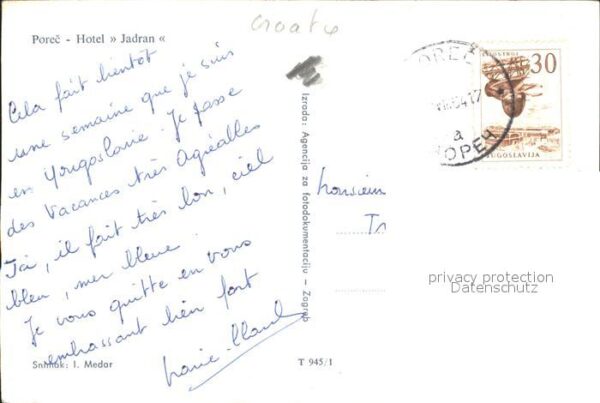 Croatie
Poreč - Hotel » Jadran «
Cela fait bientot
une semaine que je suis
en Yougoslavie. Je passe
des vacances très Agréables
Ici, il fait très bon, ciel
bleu, mer bleue.
Je vous quitte en vous
embrassant bien fort
Marie-Claude
Snimak: I. Medar
Izrada: Agencija za fotodokumentaciju — Zagreb
T 945/1
POREČ
a
ПОРЕЧ
30
JUGOSLAVIJA
Monsieur
privacy protection
Datenschutz